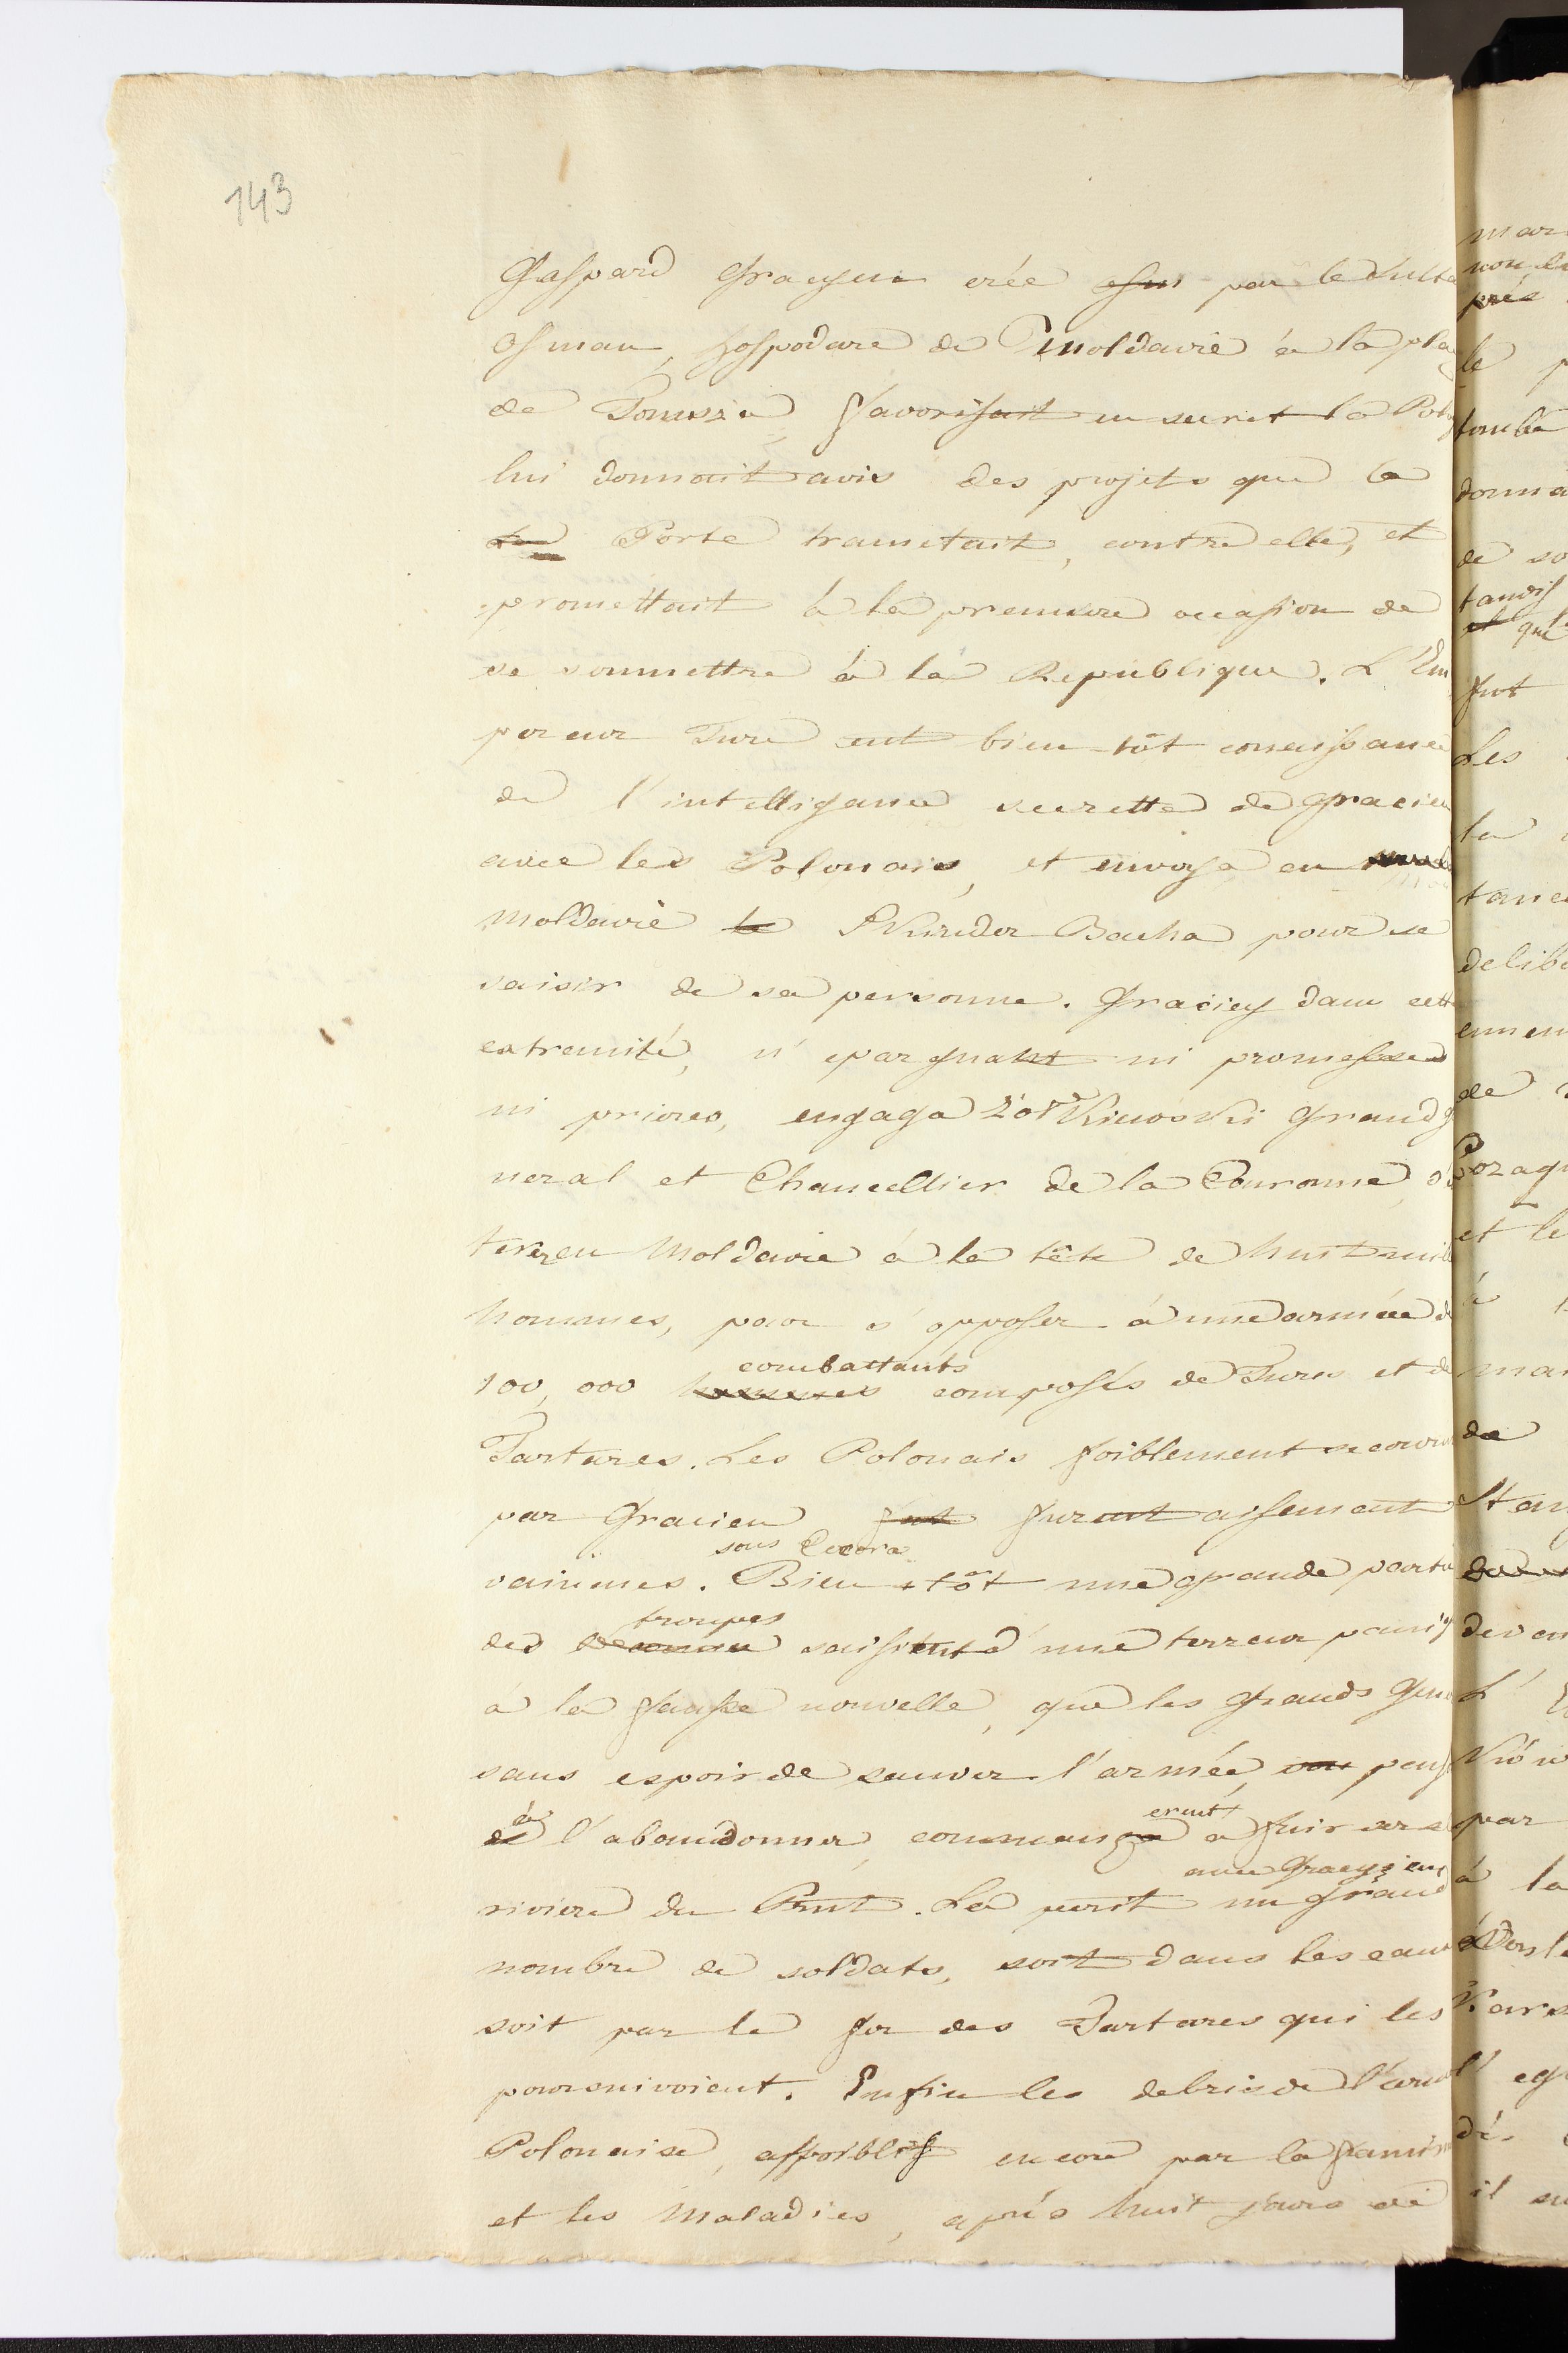 143
Gaspard Gracyen crée par le Sulta
Osman, hospodare de Moldavie à la pla
de Tomszia, favorisait en secret la Polo
lui donnoit avis des projets que la
la Porte trametait, contre elle, et
promettait à la premiere occasion de
se soumettre à la Republique. L'Em
pereur Turc eut bien-tôt connaissance
de l'intelligence secrette de Gracien
avec les Polonais, et envoya en
Moldavie le Skinder Bacha pour se
saisir de sa personne. Gracien dans cette
extremité, n'epargnant ni promesses
ni prieres, engaga Żołkiewski Grand g
neral et Chancellier de la Couronne, d'e
trer en Moldavie à la tête de huit mill
hommes, pour s'opposer à une armée de
combattants
100,000 hommes composés de Turcs et de
Tartares. Les Polonais foiblement secouru
par Gracien fut furent aisement
sous Cecora
vaincues. Bien-tôt une grande partie
troupes
des saisirent d'une terreur paniq
à la fausse nouvelle, que les Grands Gene
sans espoir de sauver l'armée, pens
à
de l'abandonner, commença à fuir vers
erent
avec Gracyien
riviere du Prut. La perit un grand
nombre de soldats, soit dans les eaux
soit par le fer des Tartares qui les
poursuivoient. Enfin les debris de l'armé
Polonaise, affoiblis encore par la famin
et les maladies, après huit jours de
mar
non lo
près
le p
tomba
donna
de so
tandis
et que
fut
Les
la
tance
delibe
ennem
de
Poragn
et le
à
mar
de
Stan
devan
L'
kiow
par
à la
Dorsl
Vars
l'eg
dé
il su